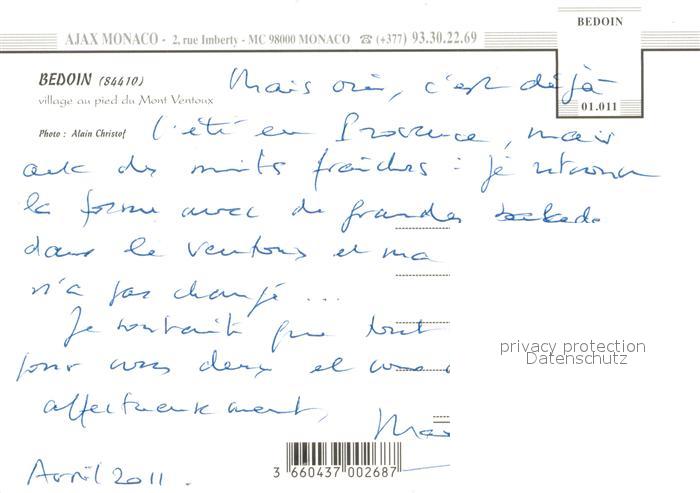 AJAX MONACO - 2, rue Imberty - MC 98000 MONACO ☎ (+377) 93.30.22.69
BEDOIN
01.011
BEDOIN (84410)
village au pied du Mont Ventoux
Photo : Alain Christof
Mais oui, c'est déjà
l'été en Provence, mais
avec des nuits fraîches : je retrouve
la forme avec de grandes balades
dans le Ventoux et ma
n'a pas changé ...
Je souhaite que tout
pour vous deux et vous
affectueusement,
Mar
Avril 2011.
3 660437 002687
privacy protection
Datenschutz